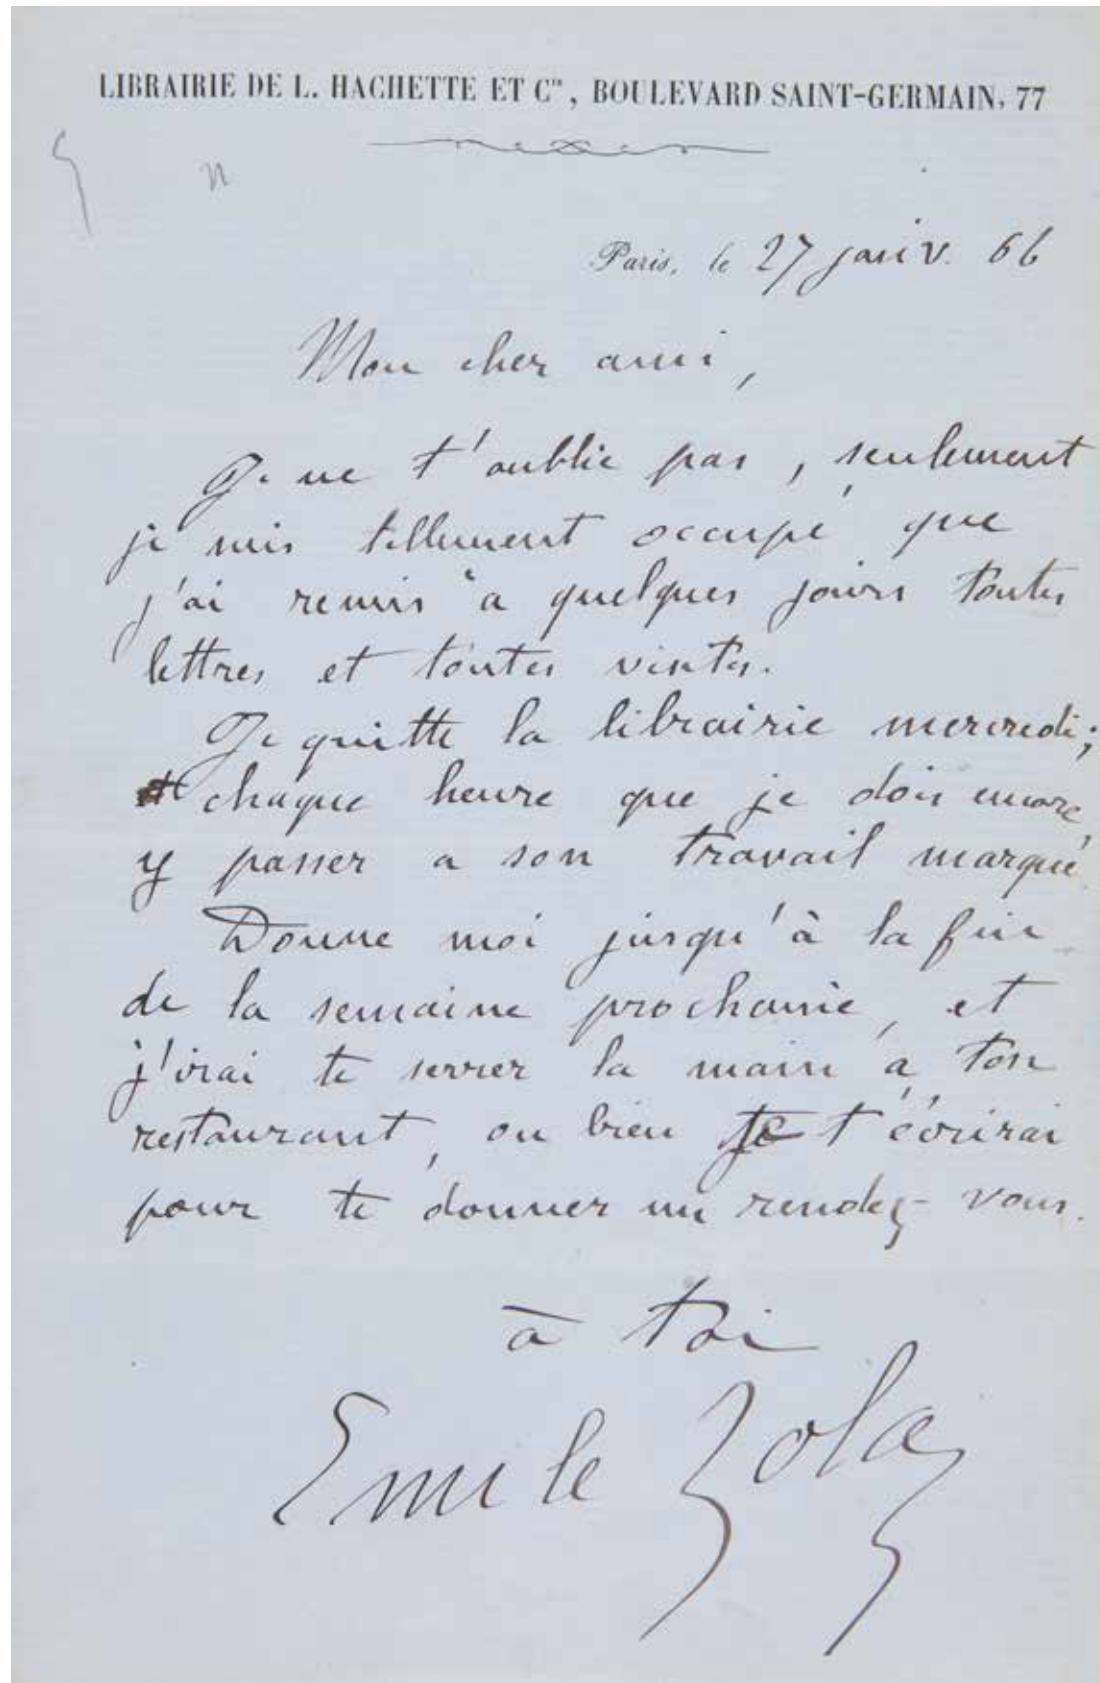 LIBRAIRIE DE L. HACHETTE ET Cie, BOULEVARD SAINT-GERMAIN, 77
Paris, le 27 janv. 66
Mon cher ami,
Je ne t'oublie pas, seulement
je suis tellement occupé que
j'ai remis à quelques jours toutes
lettres et toutes visites.
Je quitte la librairie mercredi;
chaque heure que je dois encore
y passer a son travail marqué.
Donne moi jusqu'à la fin
de la semaine prochaine, et
j'irai te serrer la main à ton
restaurant, ou bien je t'écrirai
pour te donner un rendez-vous.
à toi
Emile Zola